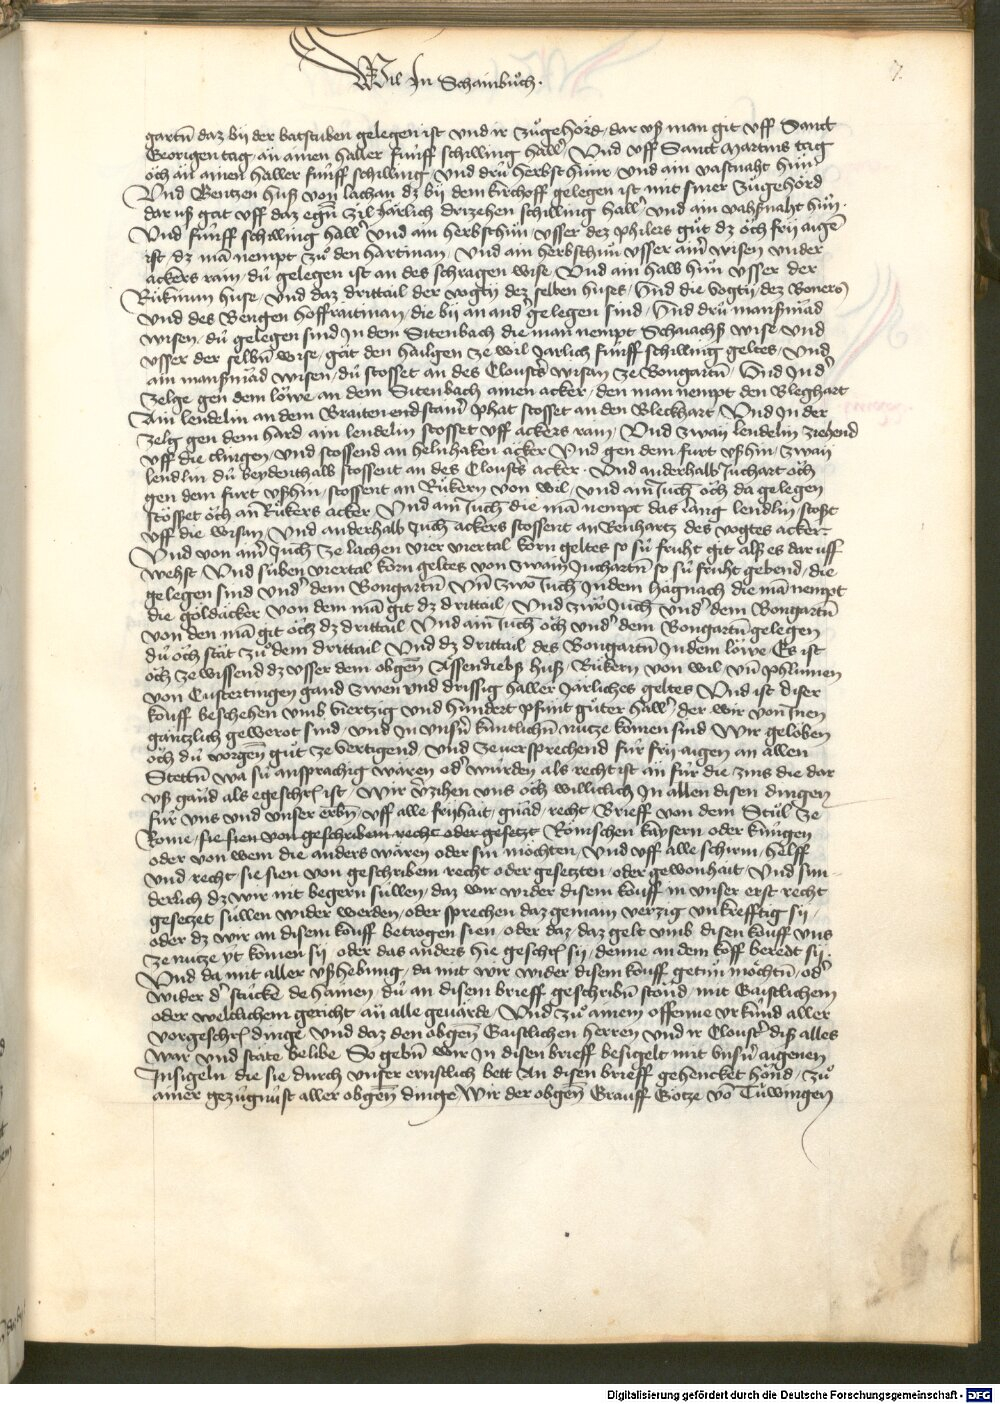 Wil In Schainbůch.
7.
gartn̄ daz bij der batstuben gelegen ist vnd ir zůgehörd, dar vß man git vff Sanct
Georigen tag, än ainen haller fünff schilling hallr̄, Vnd vff Sanct Martins tag
öch än ainen haller fünff schilling, vnd drü herbsthünr, vnd ain vasnaht hůn
Vnd Bentzen huß von lachan dz bij dem kirchoff gelegen ist mit siner zůgehörd
dar vß gät vff daz egn̄ zil järlich drizehen schilling hallr̄, vnd ain vaßnaht hůn.
Vnd fünff schilling hallr̄ vnd ain herbsthůn, vsser dez philers gůt dz öch frij aigē
ist, dz mā nempt zů den hartman, Vnd ain herbsthůn vsser aim̄ wisen vnder
ackers rain, dü gelegen ist an des schragen wise, Vnd ain halb hůn vsser der
Rükinun huse, Vnd daz drittail der vogtij dez selben huses, Vnd die vogtij dez
vnd des Bengen hoffraitinan, die bij an andr̄ gelegen sind, Vnd drü manßmäd
wisen, dü gelegen sind In dem Sitenbach die man nempt wise vnd
vsser der selbn̄ wise, gät den hailigen ze wil Jarlich fünff schilling geltes, Vnd
ain manßmäd wisen, dü stosset an des Closters wisan ze Bongartn̄, Vnd In dr̄
zelge gen dem löwe an dem Sitenbach ainen acker, den man nempt den Bleghart
Ain lendelin an dem Braiten end stain phat stosset an den Bleckhart, Vnd In der
zelg gen dem hard ain lendelin stosset vff ackers rain, Vnd zwaij lendelin ziehend
vff die clingen, vnd stossend an helnhaken äcker Vnd gen dem furt vßhin, zwaij
lendlin dü beydenthalb stossent an des Closters acker. Vnd anderhalb Juchart öch
gen dem furt vßhin, stossent an Rükern von wil, vnd ain Juch öch da gelegen
stösset öch an Rükers acker Vnd ain Juch die mā nempt das lang lendlin stost
vff die wisan, Vnd anderhalb Juch ackers stossent an Renhartz des vogtes acker.
Vnd von aim̄ Juch ze lachen vier viertal korn geltes so sü fruht git alß es dar uff
wehst, Vnd süben viertal korn geltes von zwain Juchartn̄ so sü fruht gebend, die
gelegen sind vndr̄ dem Bongartn̄ Vn̄ zwö Juch In dem hagnach die mā nempt
die goldäcker von dem mā git dz drittail, Vnd zwö Juch vndr̄ dem Bongartn̄
von den mā git öch dz drittail Vnd ain Juch öch vndr̄ dem Bongartn̄ gelegen
dü öch stät zů dem drittail Vnd dz drittail des Bongartn̄ In dem löwe Es ist
öch ze wissend dz vsser dem obgen̄ Assendiebß huß, Rükern von wil vn̄ phlumen
von Custertingen gand zwen vnd drissig haller Järliches geltes Vnd ist diser
kouff beschehen vmb viertzig vnd hundert pfunt güter hallr̄ der wir von Inen
gäntzlich gewerot sind, vnd In vnsern̄ kuntlichn̄ nutze komen sind Wir geloben
öch dü vorgen̄ gůt ze vertigend, vnd ze versprechend für frij aigen an allen
Stettn̄ wa sü ansprachig wären odr̄ würden als recht ist än für die zins die dar
vß gänd als egeschrẽ ist, Wir vr̄zihen vns öch willicklich In allen disen dingen
für vns vnd vnser erbn̄, vff alle frijhait, gnäd, recht, Brieff von dem Stůl ze
Rome, sie sien von geschribem recht oder gesetzt Römischen kaysern oder künigen
oder von wem die anders wären oder sin möchten, Vnd vff alle schirm, helff
vnd recht sie sien von geschribem recht oder gesetzten, oder gewonhait, Vnd sun-
derlich dz wir nit begern süllen, daz wir wider disem kouff in vnser erst recht
gesetzet süllen wider werden, oder sprechen daz gemain verzig vnkrefftig sij,
oder dz wir an disem kouff betrogen sien, oder daz daz gelt vmb disen kouff vns
ze nutze nÿt komen sij, oder das anders hie geschrẽ sij, denne an dem koff beredt sij.
Vnd da mit aller vßhebung, da mit wir wider disem kouff getůn möchtn̄, odr̄
wider dr̄ stücke dehainen, dü an disem brieff geschribn̄ stönd, mit Gaistlichem
oder weltlichem gericht än alle geuärde, Vnd zů ainem offenne vrkünd aller
vorgeschrẽ dinge vnd daz den obgen̄ Gaistlichen herren vnd ir Closter diß alles
war vnd stäte belibe So gebn̄ wir In disen brieff besigelt mit vnsern̄ aigenen
Insigeln die sie durch vnser ernstlich bett an disen brieff gehencket hönd, zů
ainer gezügnüst aller obgen̄ dinge Wir der obgen̄ Grauff Götze vō Tüwingen
Digitalisierung gefördert durch die Deutsche Forschungsgemeinschaft - DFG